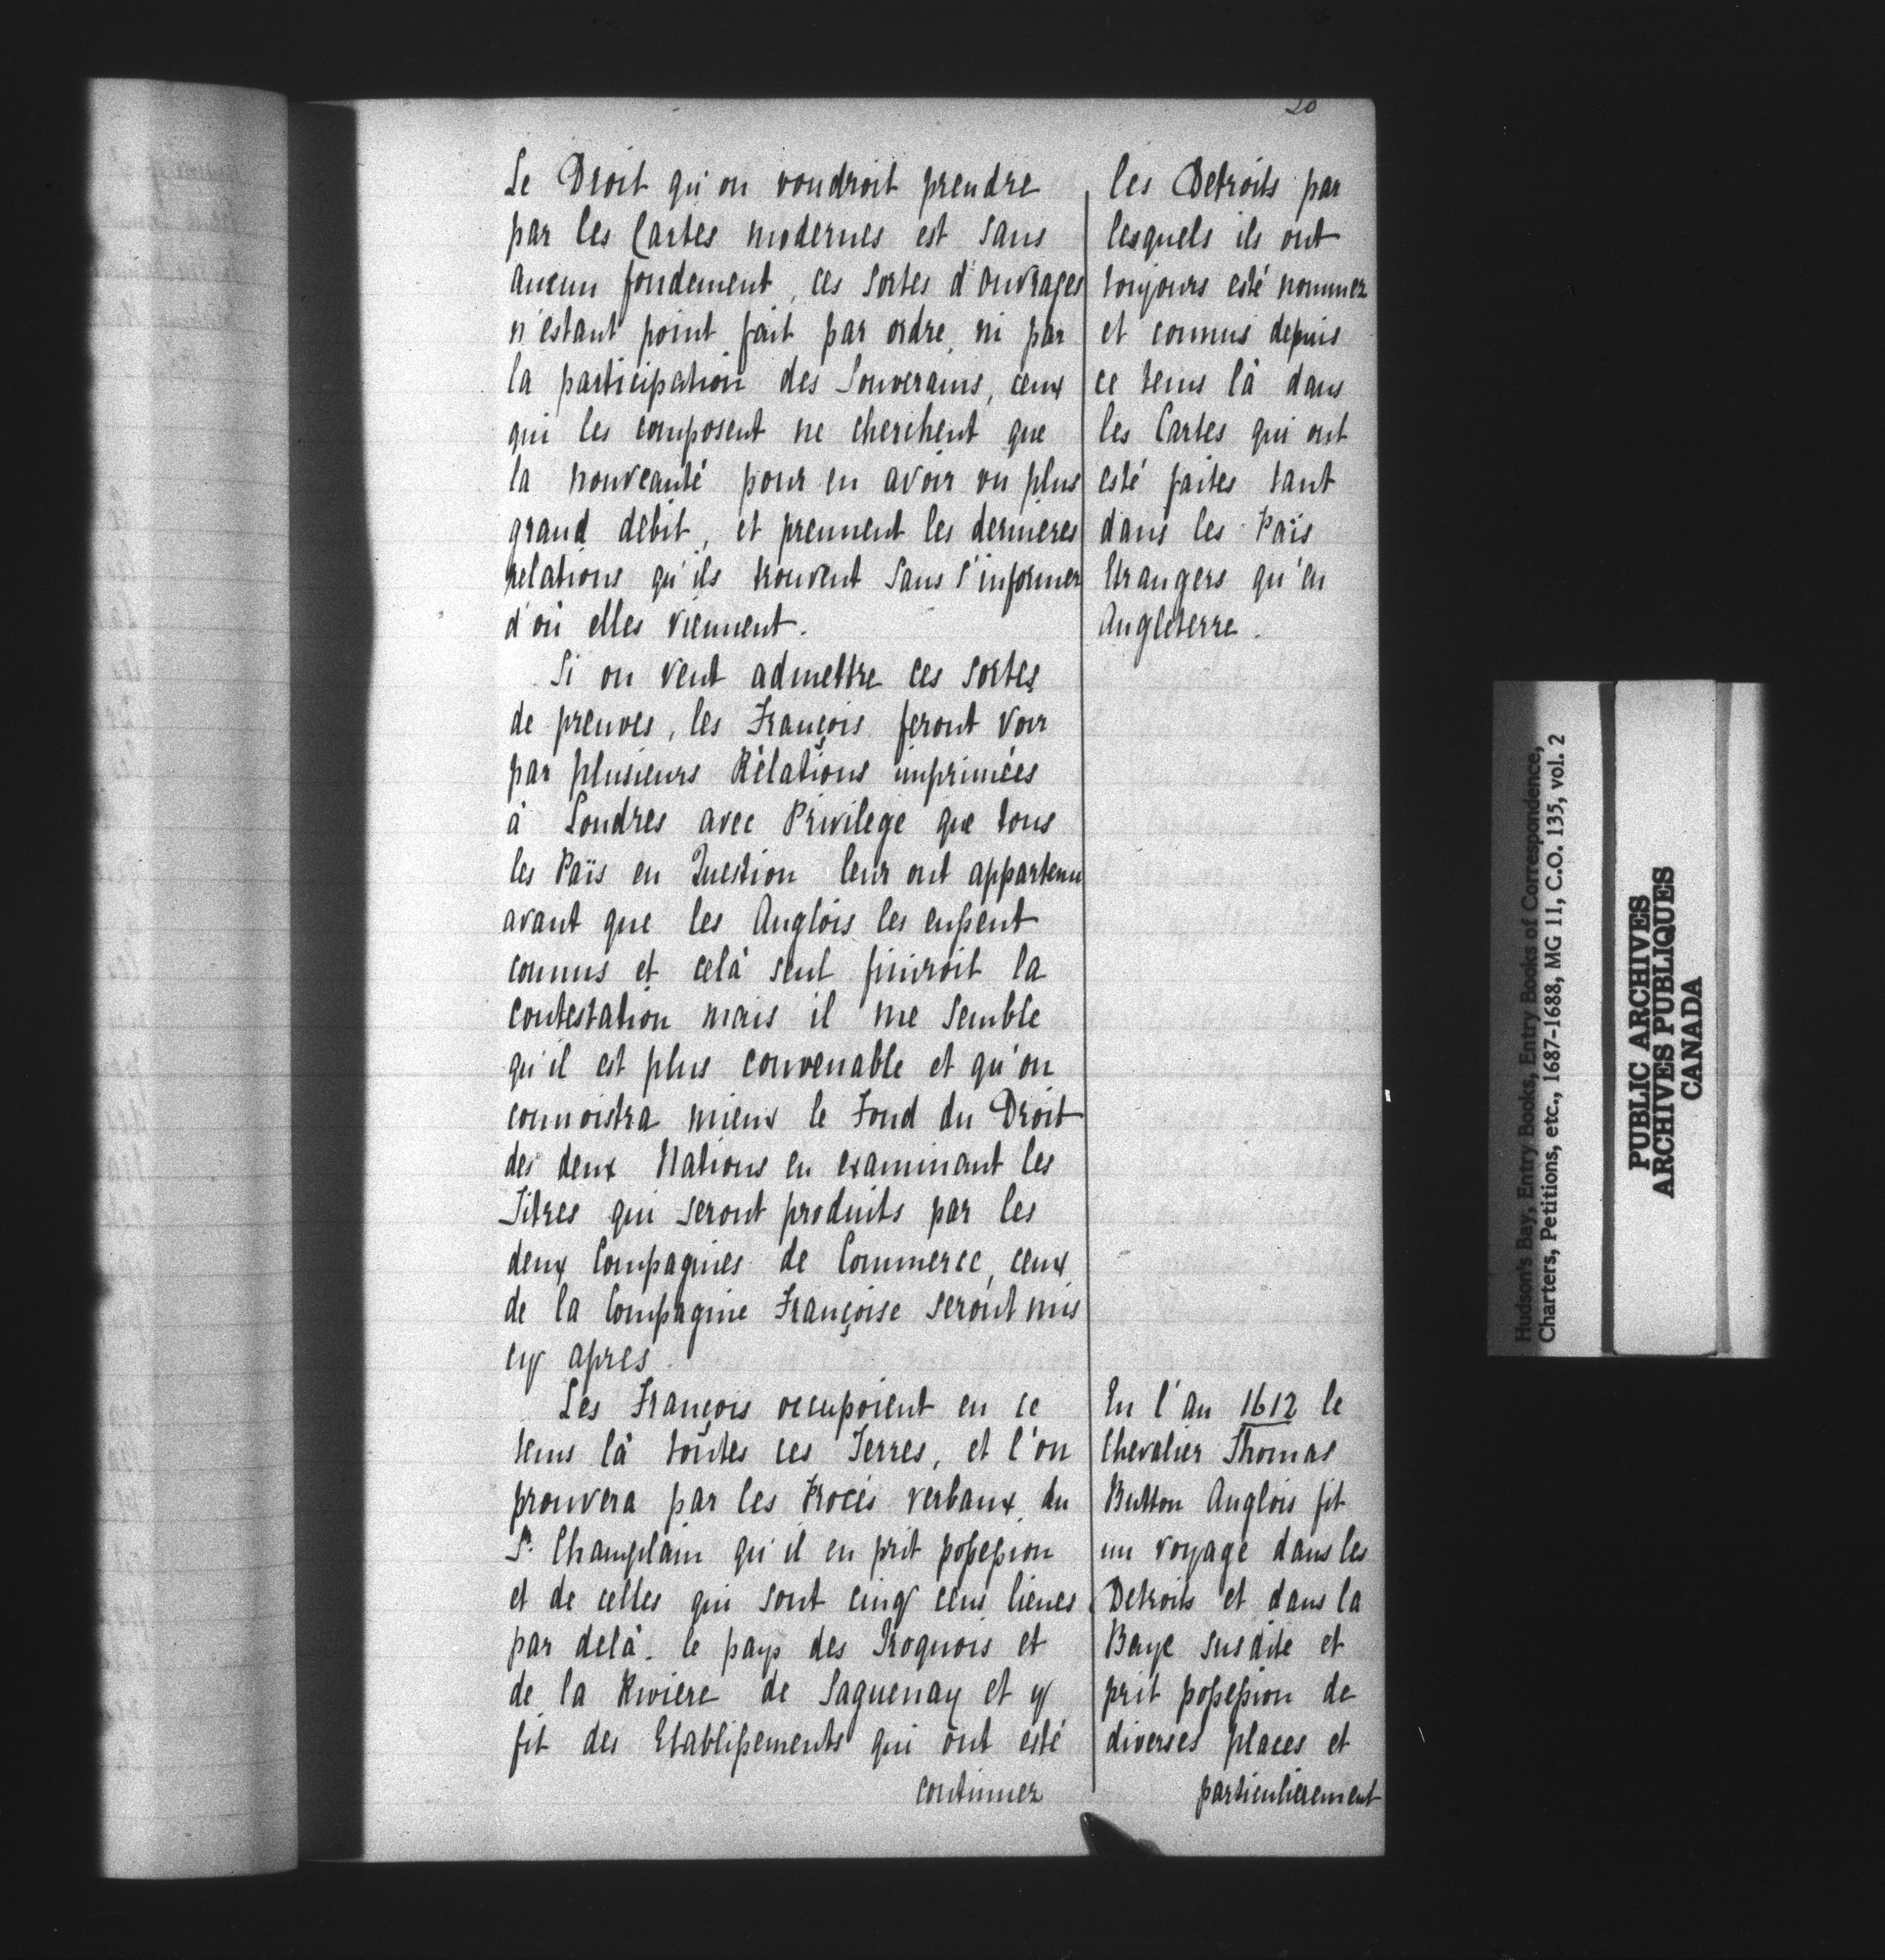 20
Le Droit qu'on voudroit prendre
par les Cartes modernes est sans
aucun fondement, ces sortes d'ouvrages
n'estant point fait par ordre, ni par
la participation des Souverains, ceux
qui les composent ne cherchent que
la nouveauté pour en avoir un plus
grand debit, et prennent les dernieres
relations qu'ils trouvent sans s'informer
d'où elles viennent.
Si on veut admettre ces sortes
de preuves, les François feront voir
par plusieurs Rélations imprimées
à Londres avec Privilege que tous
les Païs en Question leur ont appartenu
avant que les Anglois les eussent
connus et celà seul finiroit la
contestation mais il me semble
qu'il est plus convenable et qu'on
connoistra mieux le Fond du Droit
des deux Nations en examinant les
Titres qui seront produits par les
deux Compagnies de Commerce, ceux
de la Compagnie Françoise seront mis
cy apres.
Les François occupoient en ce
tems là toutes ces Terres, et l'on
prouvera par les Procés verbaux du
Sr. Champlain qu'il en prit possession
et de celles qui sont cinq cens lieues
par delà le pays des Iroquois et
de la Riviere de Saguenay et y
fit des Etablissements qui ont esté
continuez
les Detroits par
lesquels ils ont
toujours esté nommez
et connus depuis
ce tems là dans
les Cartes qui ont
esté faites tant
dans les Païs
Etrangers qu'en
Angleterre.
En l'an 1612 le
Chevalier Thomas
Button Anglois fit
un voyage dans les
Detroits et dans la
Baye susdite et
prit possession de
diverses places et
particulierement
Hudson's Bay, Entry Books, Entry Books of Correspondence,
Charters, Petitions, etc., 1687-1688, MG 11, C.O. 135, vol. 2
PUBLIC ARCHIVES
ARCHIVES PUBLIQUES
CANADA